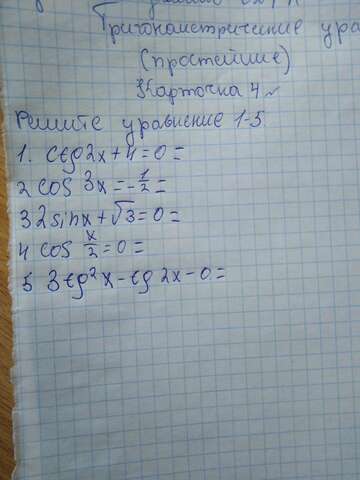 Тригонометрические ура
(простейшие)
Карточка 4
Решите уравнение 1-5
1. ctg 2x + 4 = 0 =
2 cos 3x = -1/2 =
3 2 sin x + √3 = 0 =
4 cos x/2 = 0 =
5 3 tg²x - tg 2x - 0 =